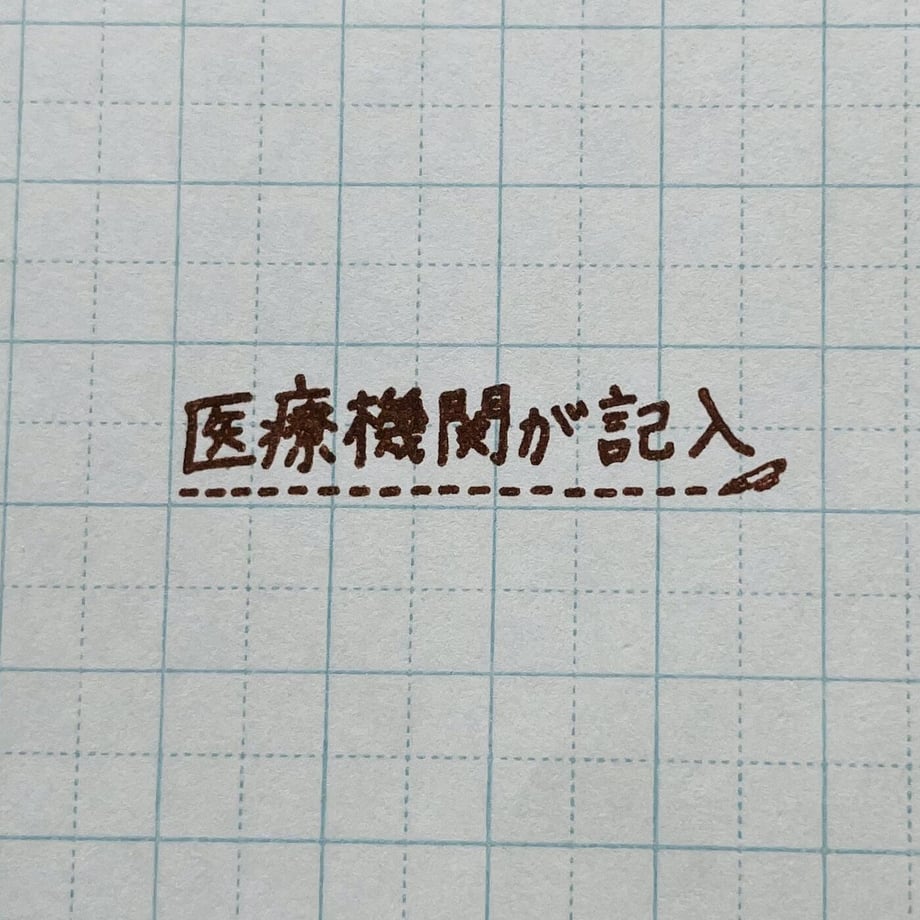 医療機関が記入